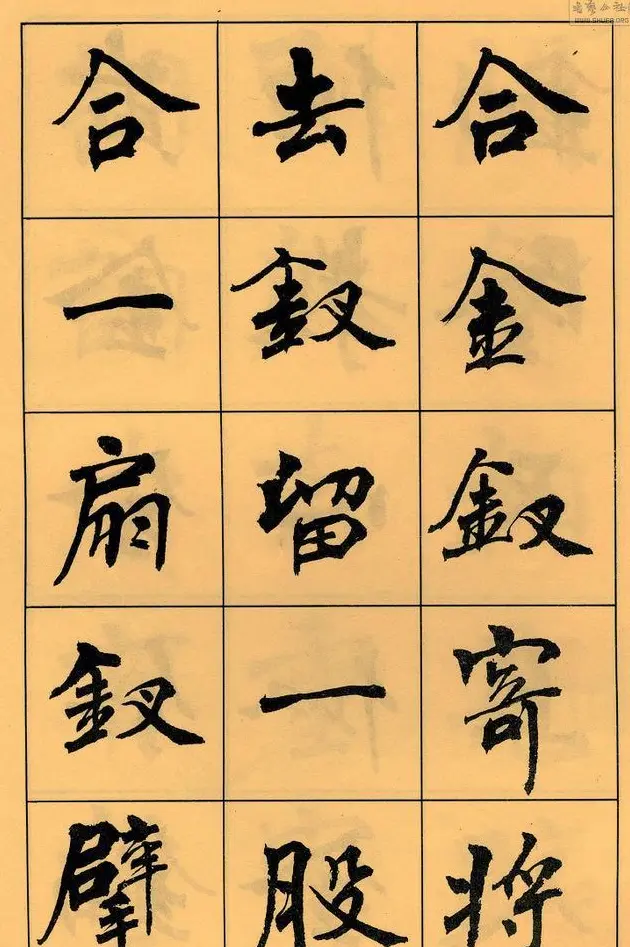 合金釵寄將
去釵留一股
合一扇釵擘
WWW.SHUFA.ORG